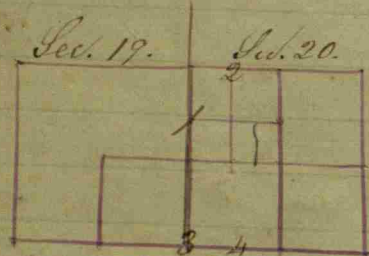 Sec. 19. Sec. 20.
2
1
3 4